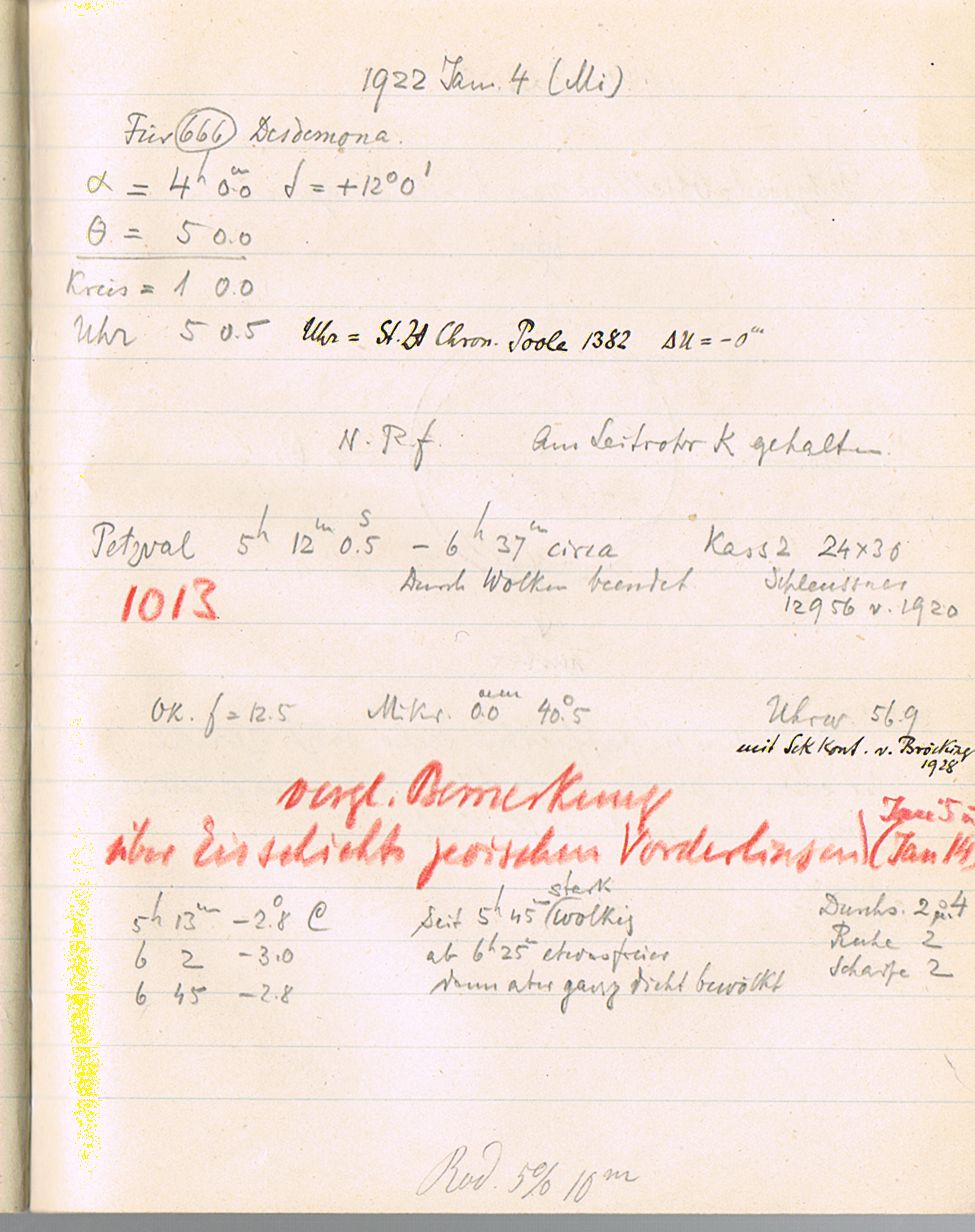 1922 Jan. 4 (Mi)
Für 666 Desdemona.
α = 4h 0.0m δ = +12°0'
θ = 5 0.0
Kreis = 1 0.0
Uhr 5 0.5 Uhr = St. Zt Chron. Poole 1382 ΔU = -0m
N. R. f. Am Leitrohr K gehalten
Petzval 5h 12m 0.5s - 6h 37m circa Kass 2 24×30
Durch Wolken beendet Schleussner
1013 12956 v. 1920
Ok. f = 12.5 Mikr. 0.0 40.°5 Uhrw. 56.9
mit Sek Kont. v. Bröcking
1928
vergl. Bemerkung
über Eisschicht zwischen Vorderlinsen (Jan 14
5h 13m -2.°8 C Seit 5h 45m stark wolkig Durchs. 2 4
6 2 -3.0 ab 6h 25m etwas freier Ruhe 2
6 45 -2.8 dann aber ganz dicht bewölkt Schärfe 2
Rod. 5% 10m